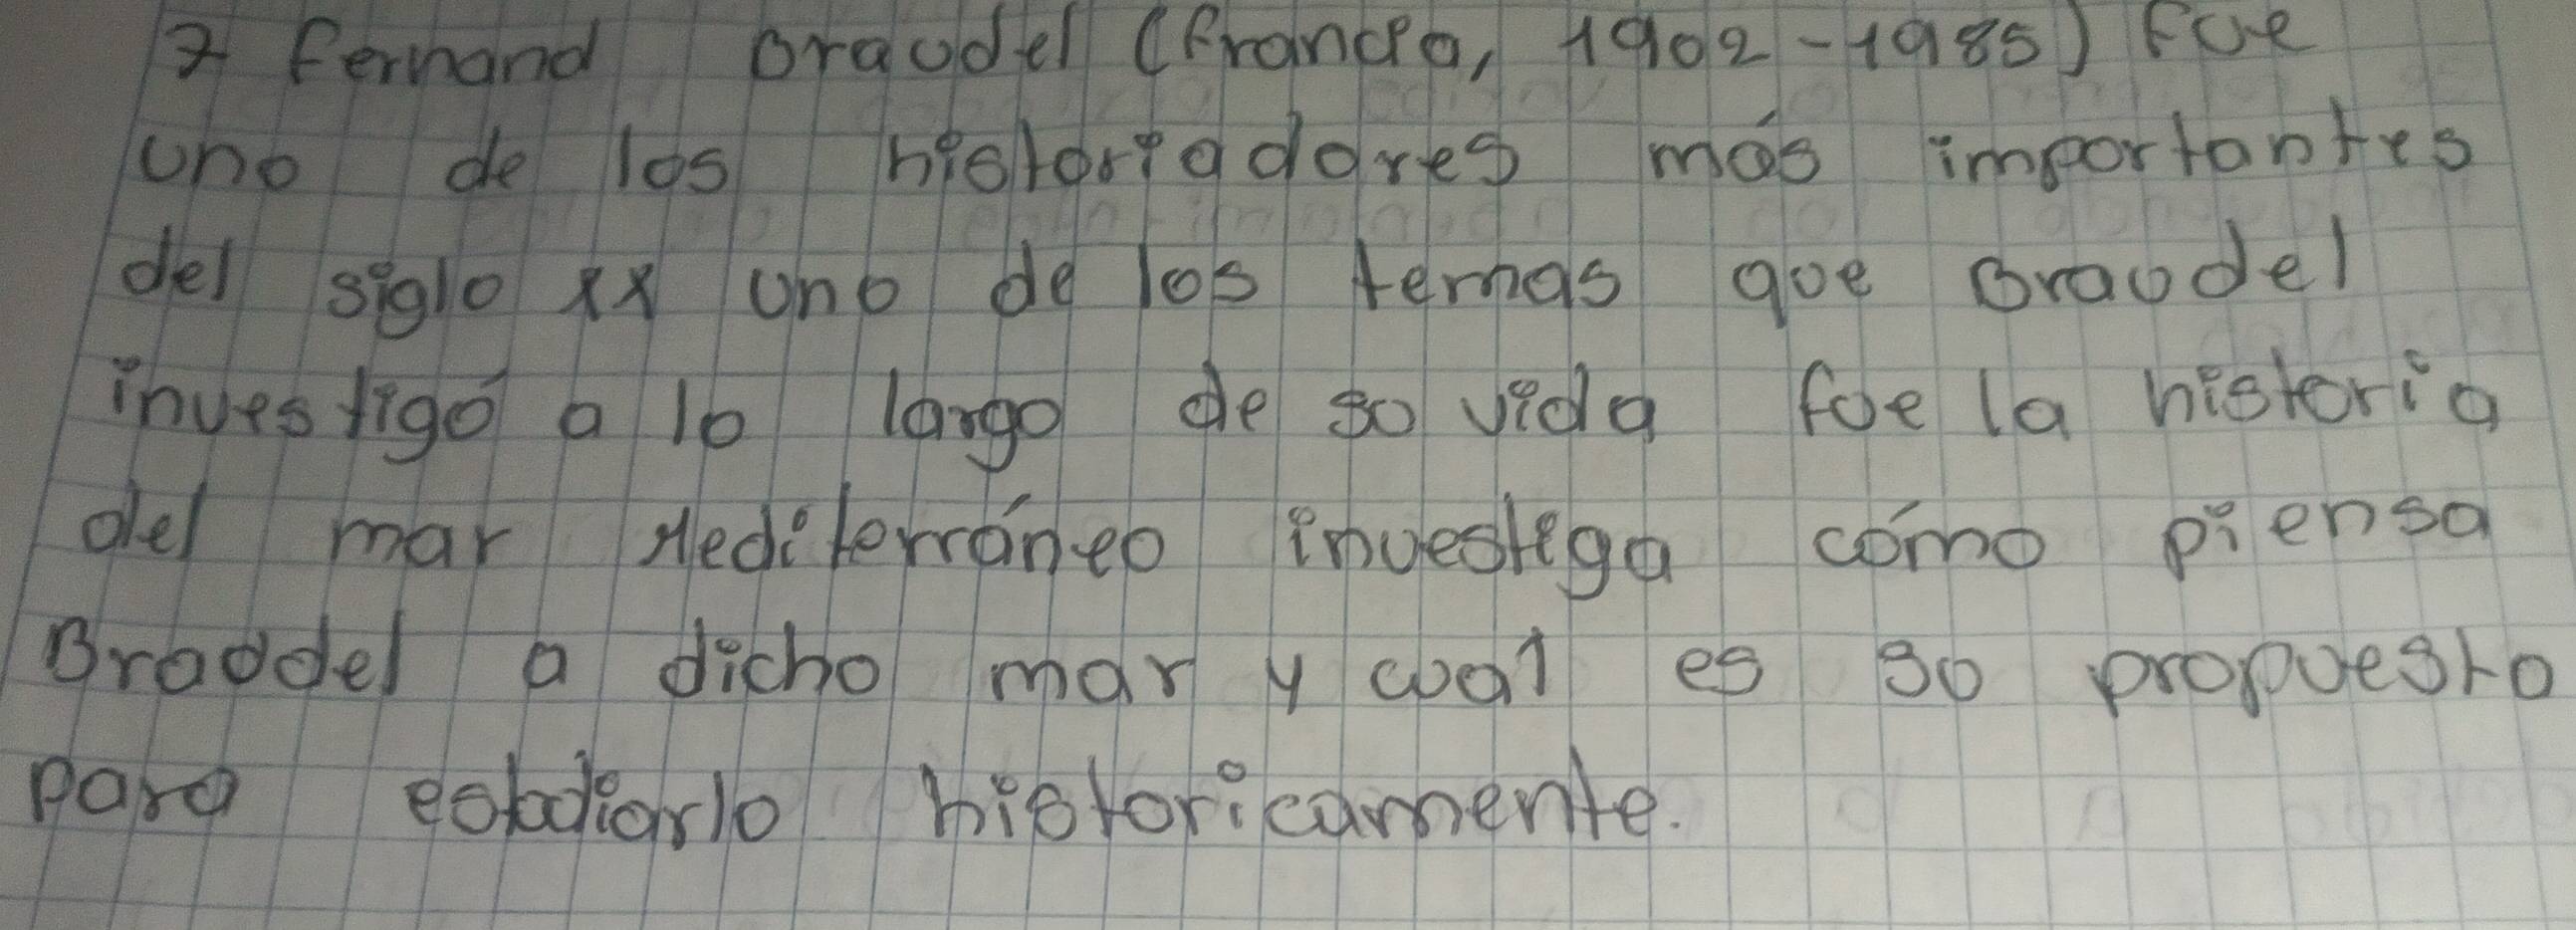 7 Fernand Braudel (Francia, 1902-1985) Fue
uno de los historiadores más importantes
del siglo xx uno de los temas que Braudel
investigó a lo largo de su vida fue la historia
del mar Mediterráneo investiga cómo piensa
Braudel a dicho mar y cual es su propuesto
para estudiarlo historicamente.